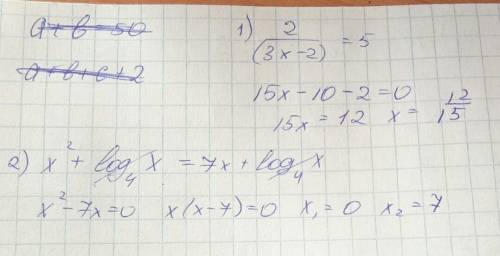 a + b = 50
a + b + c + 2
1) 2/(3x-2) = 5
15x - 10 - 2 = 0
15x = 12 x = 12/15
2) x² + log₄ x = 7x + log₄ x
x² - 7x = 0 x(x-7) = 0 x₁ = 0 x₂ = 7